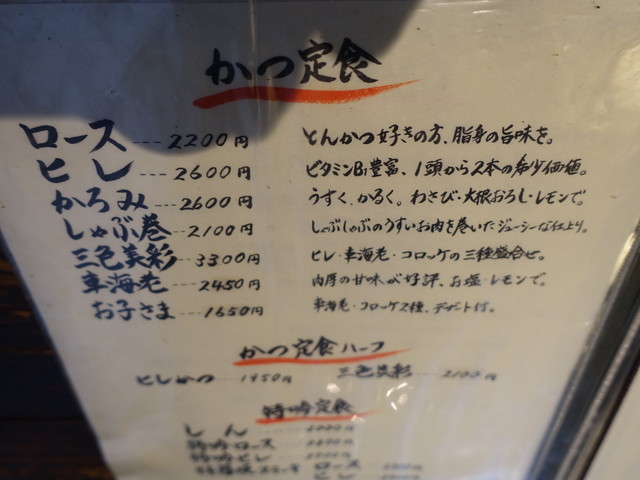 かつ定食
ロース --- 2200円 とんかつ好きの方、脂身の旨味を。
ヒレ --- 2600円 ビタミンB1豊富、1頭から2本の希少価値。
かろみ --- 2600円 うすく、かるく。わさび・大根おろし・レモンで。
しゃぶ巻 --- 2100円 しゃぶしゃぶのうすいお肉を巻いたジューシーな仕上り。
三色美彩 --- 3300円 ヒレ・車海老・コロッケの三種盛合せ。
車海老 --- 2450円 肉厚の甘味が好評、お塩・レモンで。
お子さま --- 1650円 車海老・コロッケ2種、デザート付。
かつ定食ハーフ
ヒレかつ --- 1950円 三色美彩 --- 2100円
特吟定食
しん
特吟ロース
特吟ヒレ
ロース
ヒレ